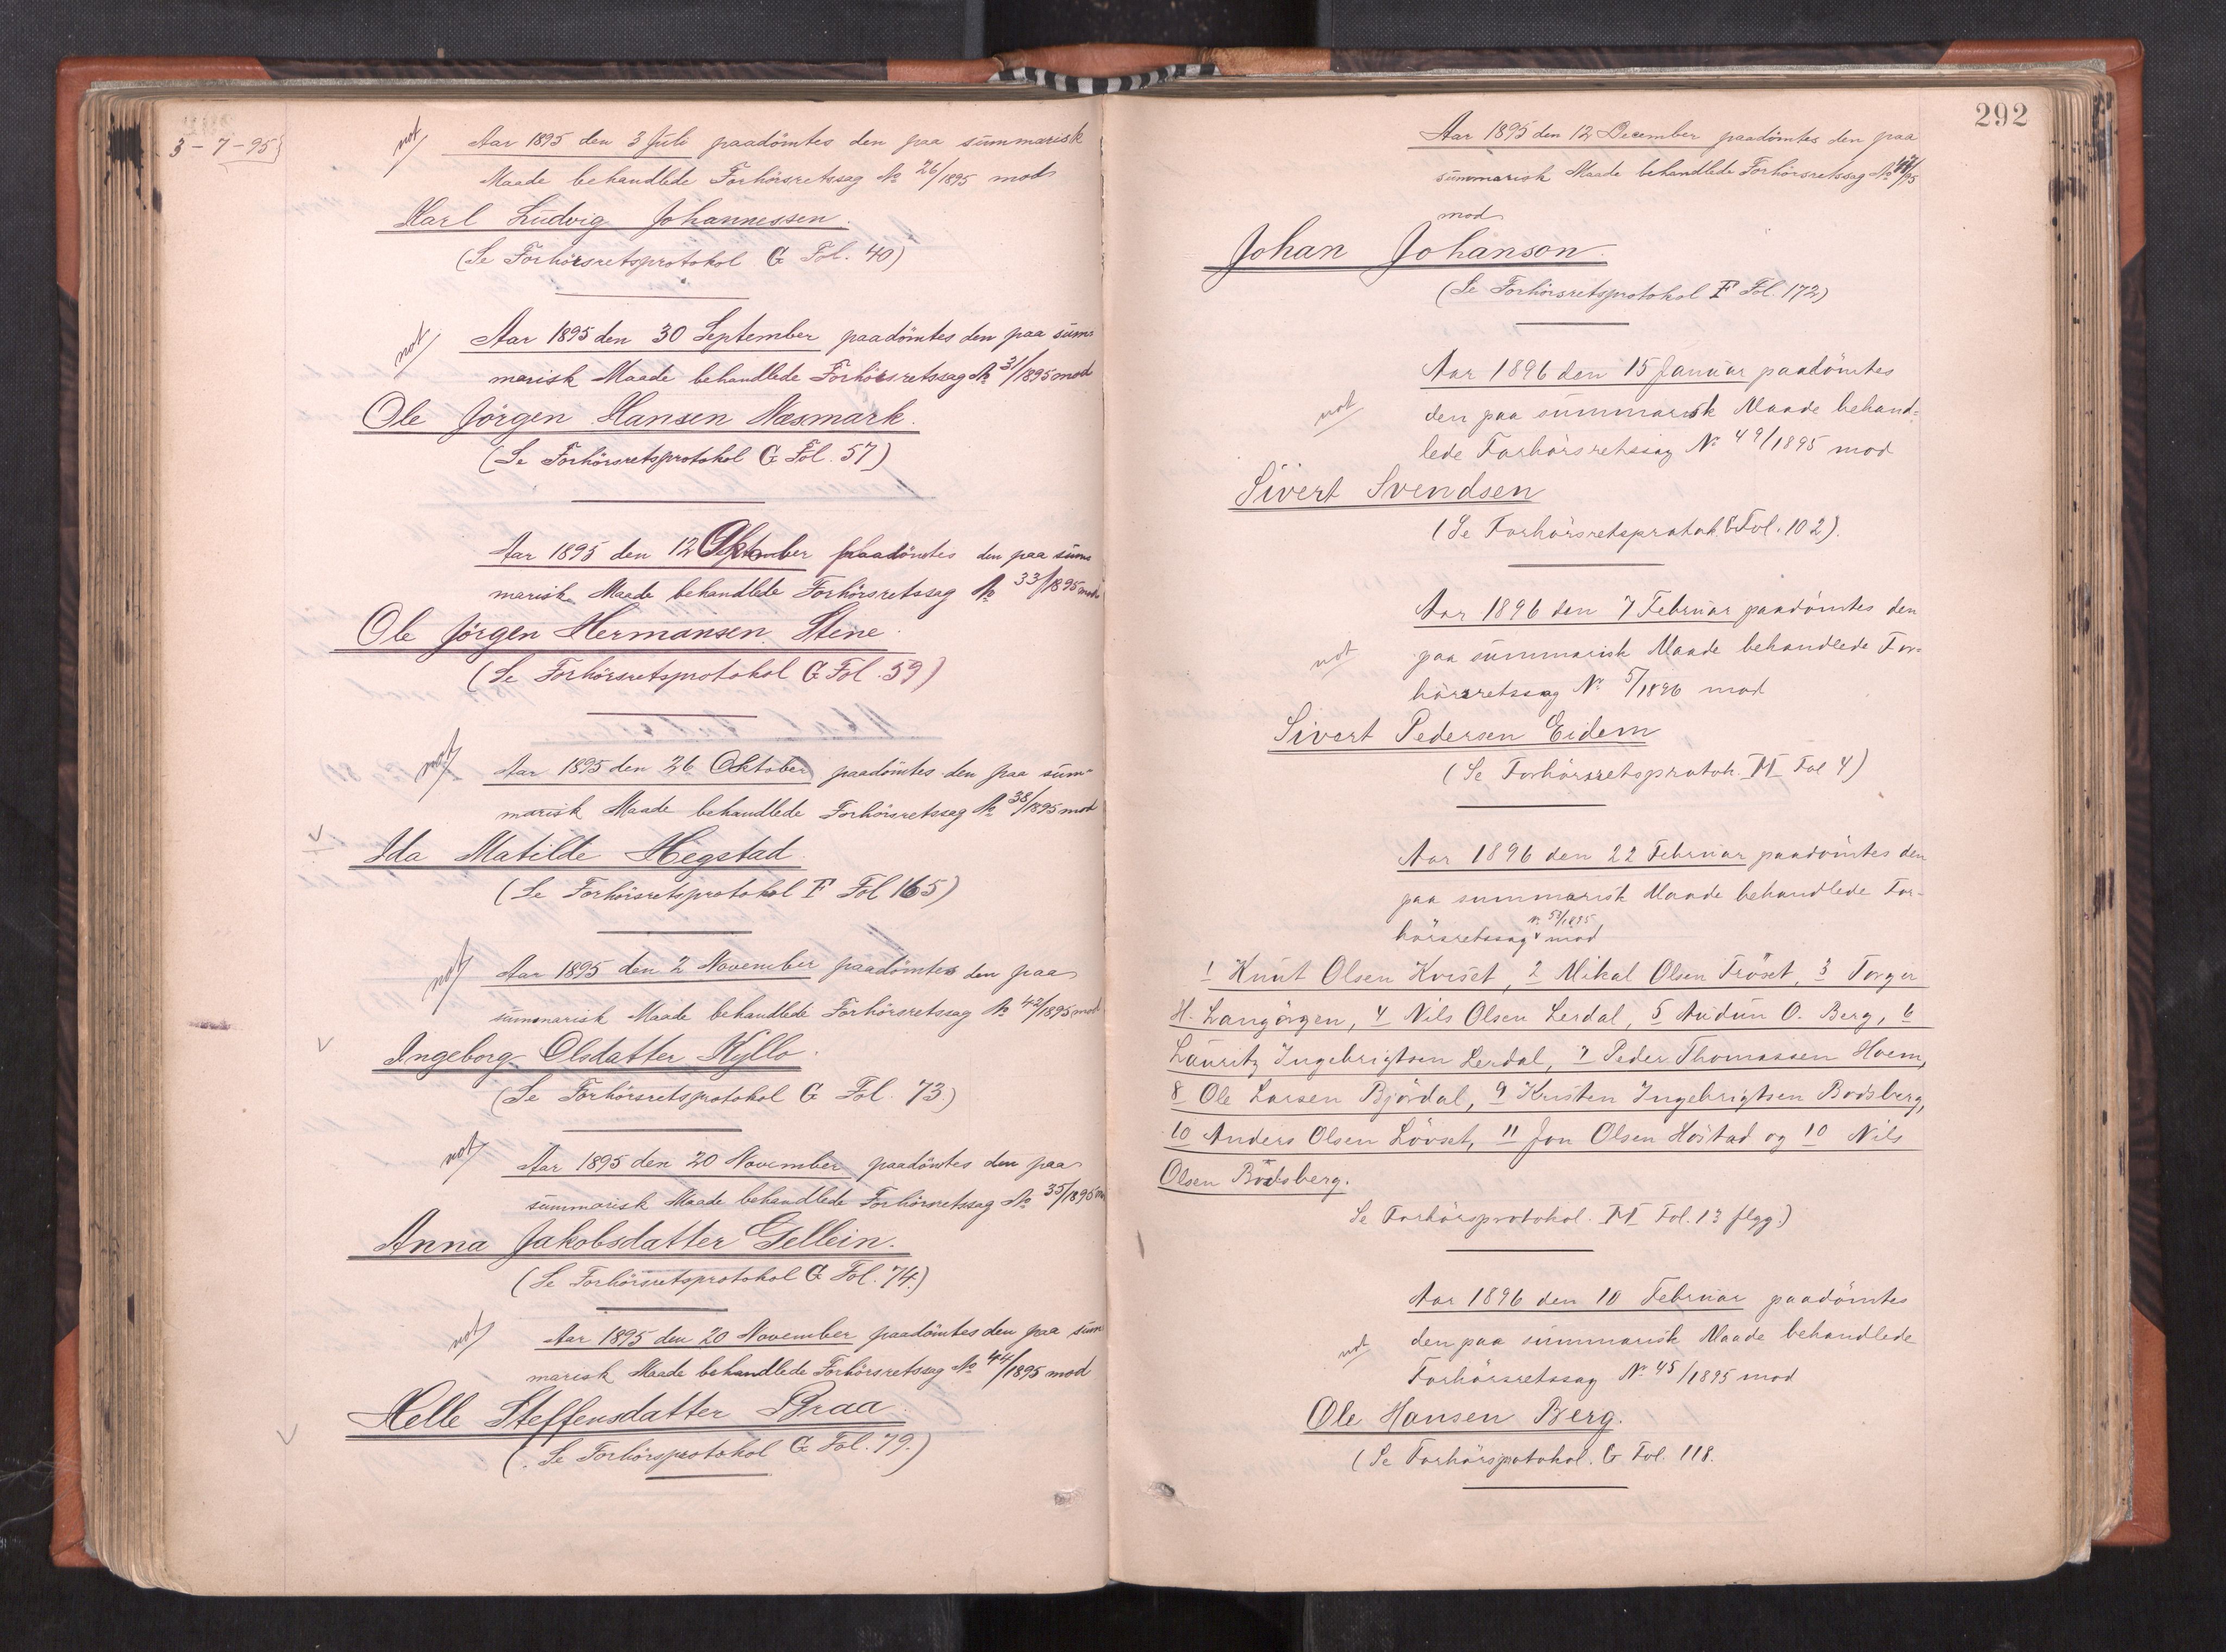 3-7-95
not
Aar 1895 den 3 Juli paadömtes den paa summarisk
Maade behandlede Forhörsretssag No 26/1895 mod
Karl Ludvig Johannessen.
(Se Forhörsretsprotokol G Fol. 40)
not
Aar 1895 den 30 September paadömtes den paa sum=
marisk Maade behandlede Forhörsretssag No 31/1895 mod
Ole Jörgen Hansen Næsmark.
(Se Forhörsretsprotokol G Fol. 57)
Aar 1895 den 12 Oktober paadömtes den paa sum=
marisk Maade behandlede Forhörsretssag No 33/1895 mod
Ole Jörgen Hermansen Stene.
(Se Forhörsretsprotokol G Fol. 59)
not
Aar 1895 den 26 Oktober paadömtes den paa sum=
marisk Maade behandlede Forhörsretssag No 38/1895 mod
Ida Matilde Hegstad
(Se Forhörsretsprotokol F Fol 165)
not
Aar 1895 den 2 November paadömtes den paa
summarisk Maade behandlede Forhörsretssag No 42/1895 mod
Ingeborg Olsdatter Kyllo.
(Se Forhörsretsprotokol G Fol. 73.)
not
Aar 1895 den 20 November paadömtes den paa
summarisk Maade behandlede Forhörsretssag No 35/1895 m
Anna Jakobsdatter Gellein.
(Se Forhörsretsprotokol G Fol. 74.)
not
Aar 1895 den 20 November paadömtes den paa sum
marisk Maade behandlede Forhörsretssag No 44/1895 mod
Helle Steffensdatter Braa.
(. Se Forhörsprotokol G Fol. 79.)
292
Aar 1895 den 12 December paadömtes den paa
summarisk Maade behandlede Forhörsretssag No /95
mod
Johan Johanson.
(Se Forhörsretsprotokol F Fol. 172)
Aar 1896 den 15 Januar paadömtes
not
den paa summarisk Maade behand=
lede Forhörsretssag No 49/1895 mod
Sivert Svendsen
(Se Forhörsretsprotok. G Fol. 102).
Aar 1896 den 7 Februar paadömtes den
not
paa summarisk Maade behandlede For=
hörsretssag No 5/1896 mod
Sivert Pedersen Eidem
(Se Forhörsretsprotok. H Fol 4)
Aar 1896 den 22 Februar paadömtes den
paa summarisk Maade behandlede For-
No 53/1895
hörsretssag mod
1 Knut Olsen Kviset, 2 Mikal Olsen Fröset, 3 Torger
H. Langörgen, 4 Nils Olsen Lerdal, 5 Audun O. Berg, 6
Lauritz Ingebrigtsen Lerdal, 7 Peder Thomassen Hoem,
8 Ole Larsen Björdal, 9 Kristen Ingebrigtsen Bodsberg,
10 Anders Olsen Lövset, 11 Jon Olsen Höstad og 10 Nils
Olsen Bodsberg.
Se Forhörsprotokol. H Fol. 13 flgg.)
Aar 1896 den 10 Februar paadömtes
not
den paa summarisk Maade behandlede
Forhörsretssag No 45/1895 mod
Ole Hansen Berg.
(Se Forhörsprotokol. G Fol. 118.